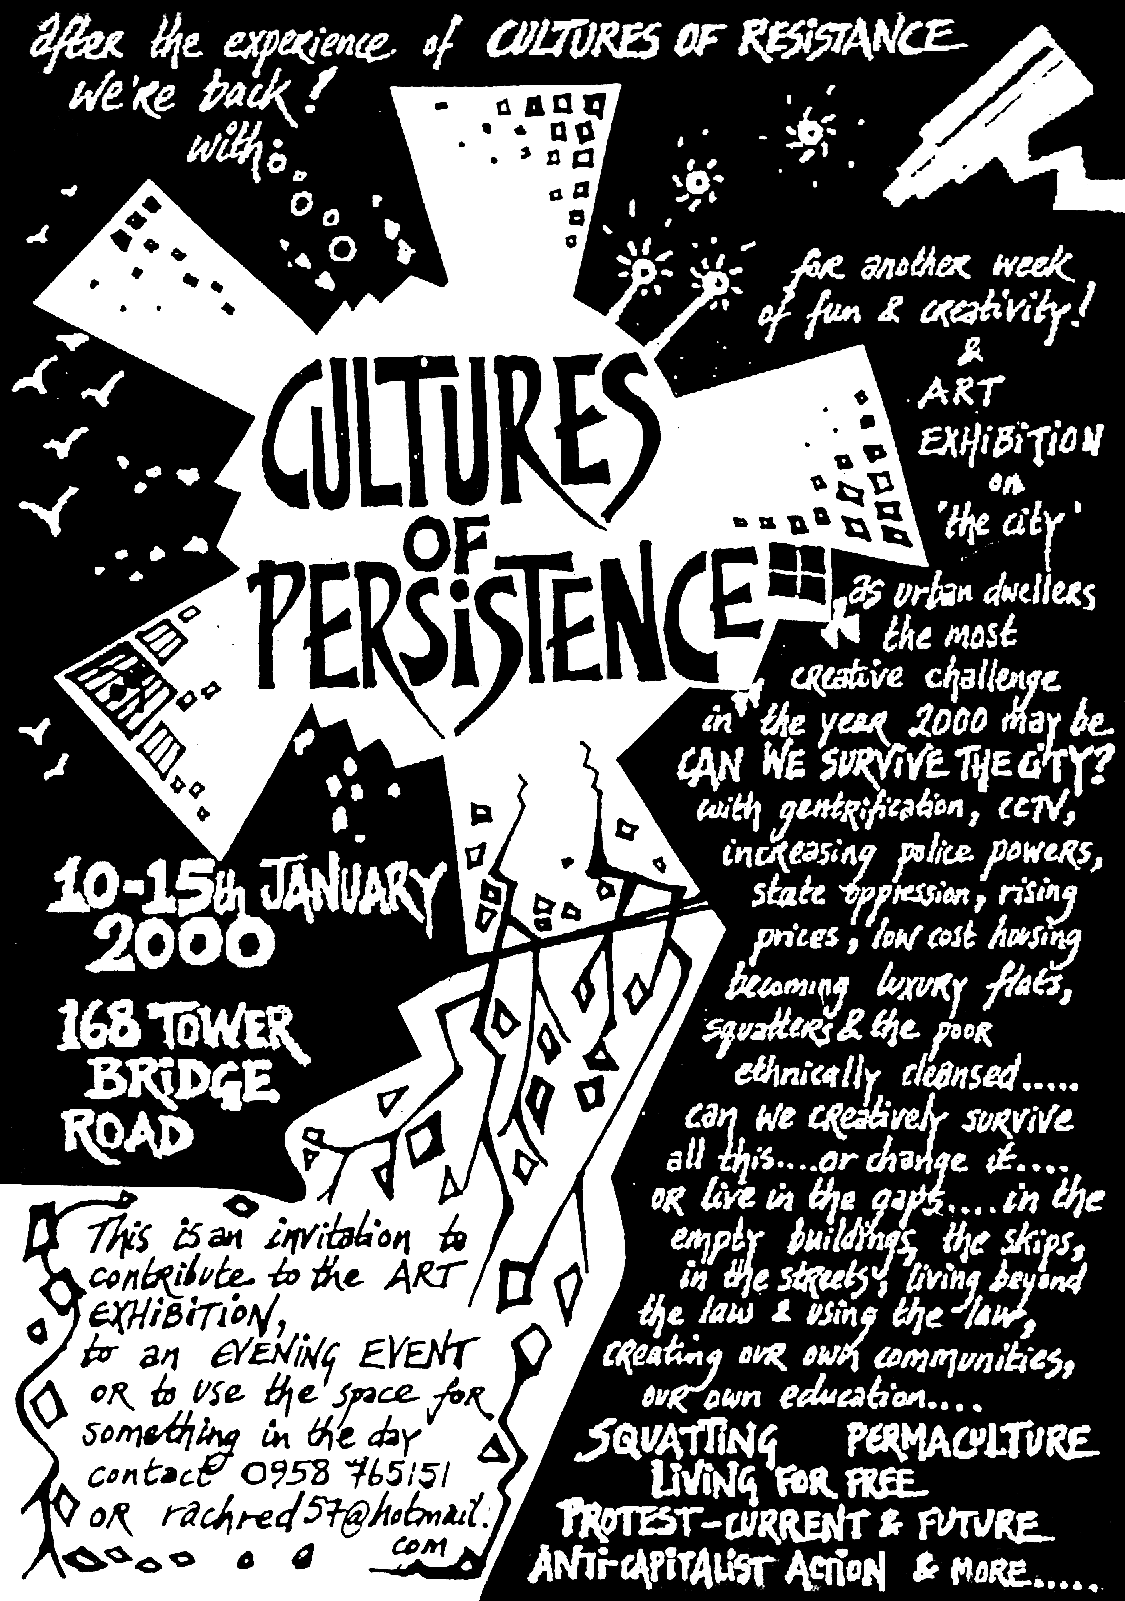 after the experience of CULTURES OF RESiSTANCE
we're back!
with
CULTURES
OF
PERSiSTENCE
for another week
of fun & creativity!
&
ART
EXHiBiTiON
on
'the city'
as urban dwellers
the most
creative challenge
in the year 2000 may be
CAN WE SURViVE THE CiTY?
with gentrification, CCTV,
increasing police powers,
state oppression, rising
prices, low cost housing
becoming luxury flats,
squatters & the poor
ethnically cleansed.....
can we creatively survive
all this....or change it....
or live in the gaps.....in the
empty buildings, the skips,
in the streets, living beyond
the law & using the law,
creating our own communities,
our own education....
SQUATTiNG PERMACULTURE
LiViNG FOR FREE
PROTEST-CURRENT & FUTURE
ANTi-CAPiTALiST ACTiON & MORE.....
10-15th JANUARY
2000
168 TOWER
BRiDGE
ROAD
This is an invitation to
contribute to the ART
EXHiBiTiON,
to an EVENiNG EVENT
or to use the space for
something in the day
contact 0958 765151
or rachred57@hotmail.
com